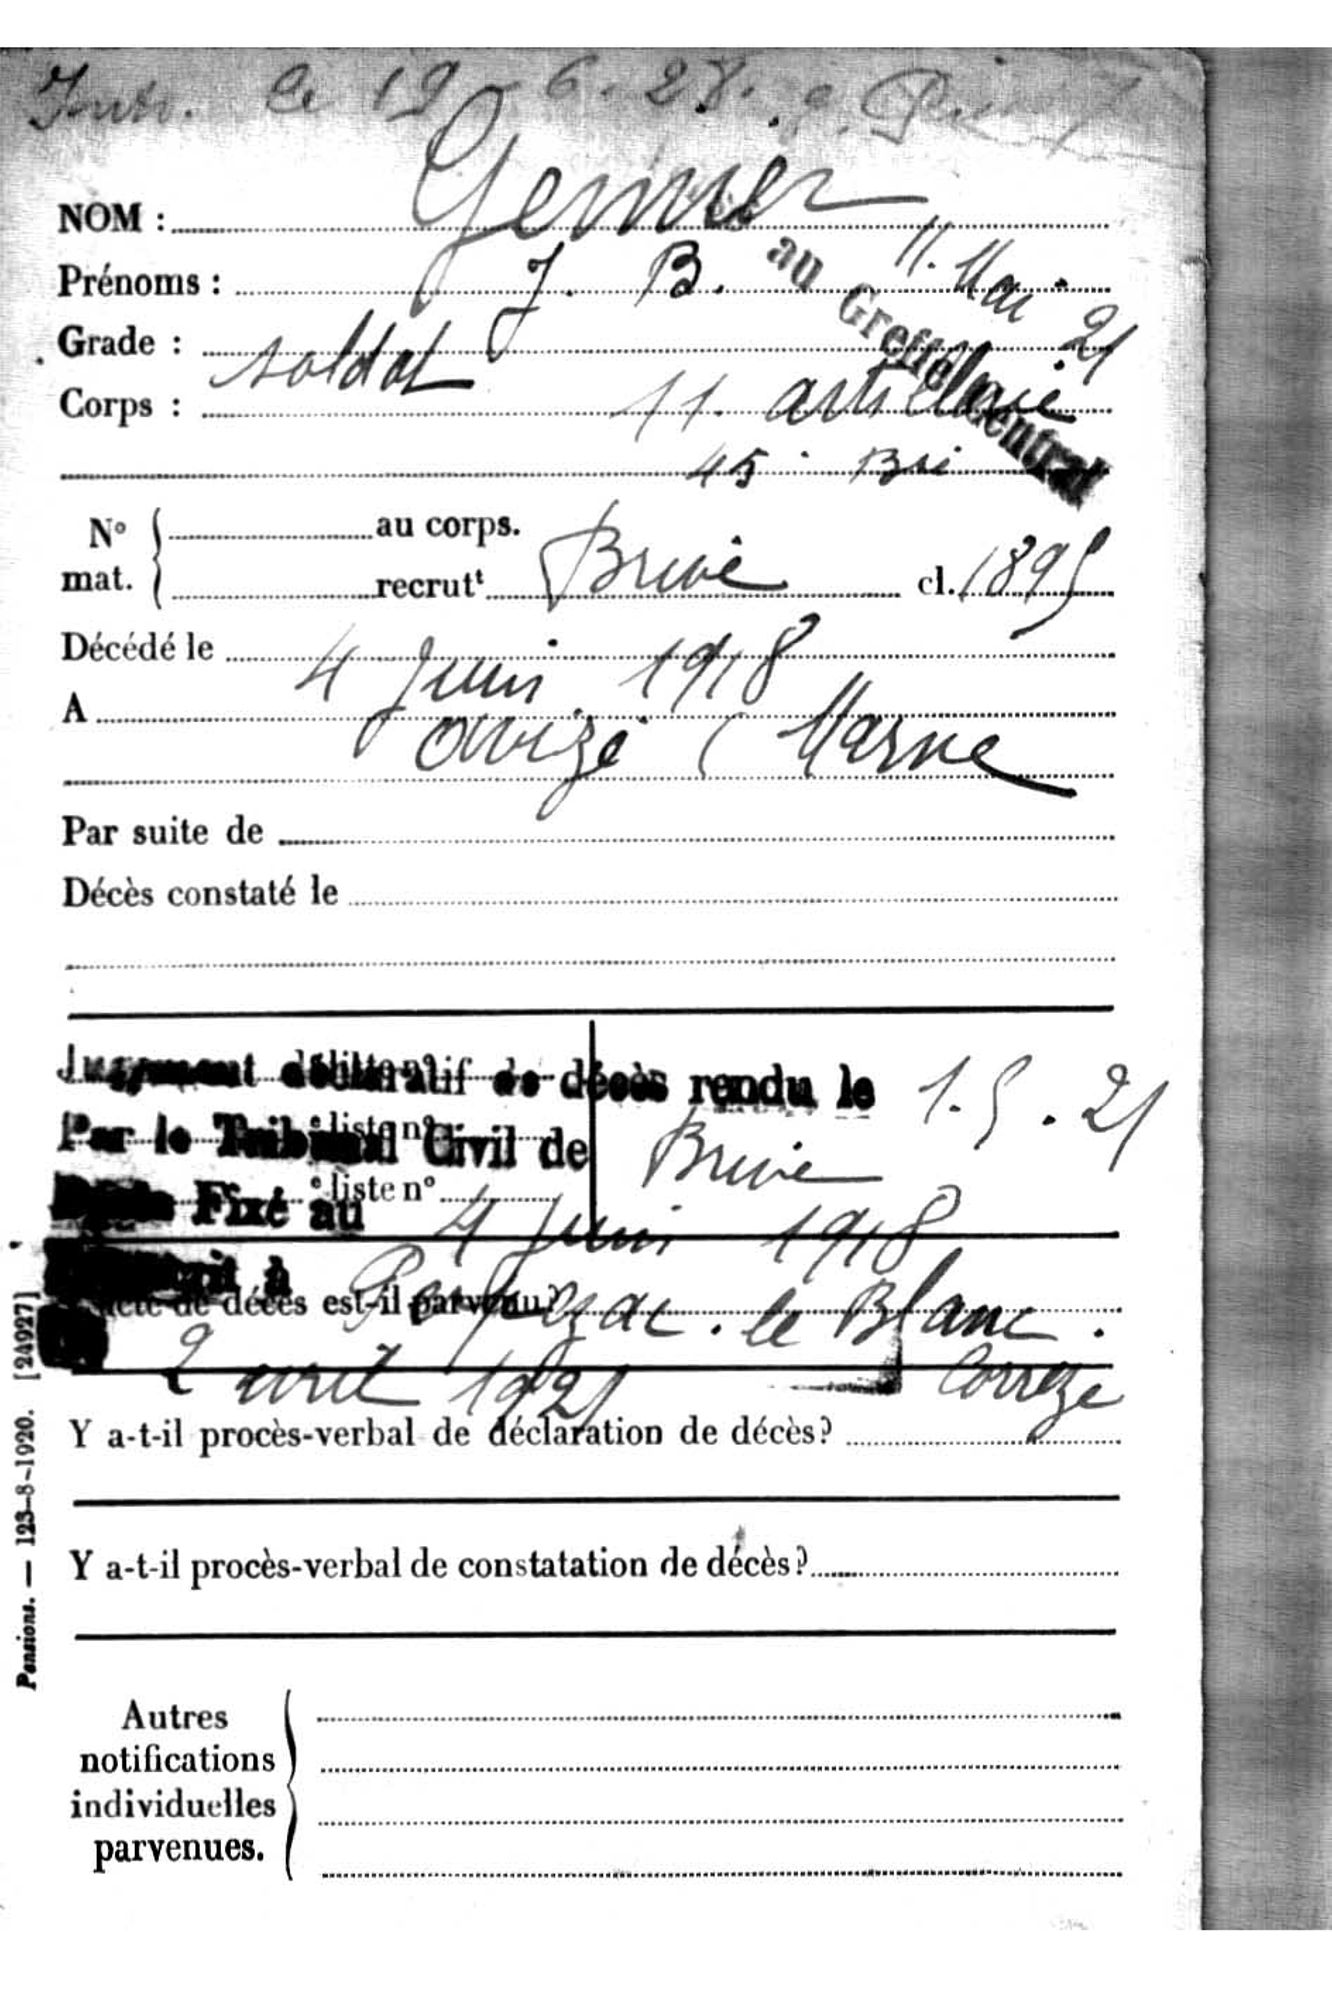 le 19-6-28.
NOM : Genier
Prénoms : J. B.
au Greffe Central
11. Mai 21
Grade : soldat
Corps : 11. artillerie
45. Bie
N° mat. au corps.
recrut^t Brive cl. 1895
Décédé le 4 Juin 1918
A avize ( Marne
Par suite de
Décès constaté le
Jugement déclaratif de décès rendu le 1.5.21
liste n°
Par le Tribunal Civil de Brive
liste n°
Décès Fixé au 4 Juin 1918
liste n°
Transcrit à Perpezac. le Blanc.
acte de décès est-il parvenu?
Corrèze
2 avril 1921
Y a-t-il procès-verbal de déclaration de décès?
Y a-t-il procès-verbal de constatation de décès?
Autres
notifications
individuelles
parvenues.
Pensions. — 123-8-1920. [24927]